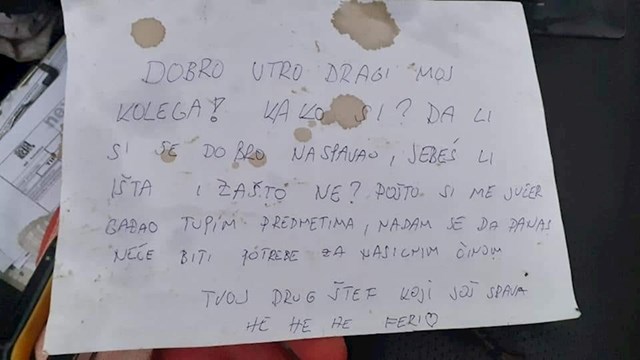 DOBRO UTRO DRAGI MOJ
KOLEGA! KAKO SI? DA LI
SI SE DOBRO NASPAVAO, JEBEŠ LI
IŠTA I ZAŠTO NE? POŠTO SI ME JUČER
GAĐAO TUPIM PREDMETIMA, NADAM SE DA DANAS
NEĆE BITI POTREBE ZA NASILNIM ČINOM
TVOJ DRUG ŠTEF KOJI JOŠ SPAVA
HE HE HE FERI♡